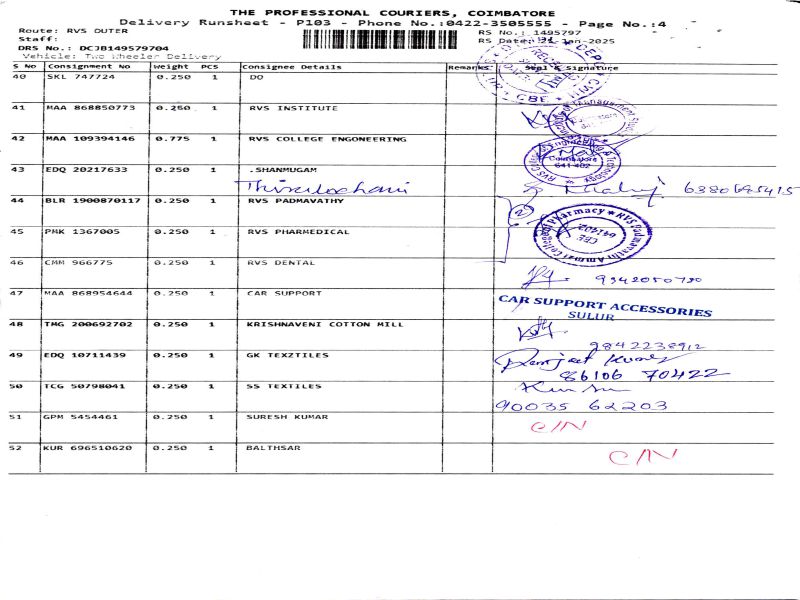 THE PROFESSIONAL COURIERS, COIMBATORE
Delivery Runsheet - P103 - Phone No.:0422-3505555 - Page No.:4
Route: RVS OUTER RS No.: 1495797
Staff: RS Date: -Jan-2025
DRS No.: DCJB149579704
Vehicle: Two Wheeler Delivery
S No Consignment No Weight PCS Consignee Details Remarks Seal & Signature
40 SKL 747724 0.250 1 DO
CBE
41 MAA 868850773 0.250 1 RVS INSTITUTE
42 MAA 109394146 0.775 1 RVS COLLEGE ENGONEERING
Coimbatore
641 402
43 EDQ 20217633 0.250 1 .SHANMUGAM
Thirulochani 6380695415
44 BLR 1900870117 0.250 1 RVS PADMAVATHY
2
45 PMK 1367005 0.250 1 RVS PHARMEDICAL
RVS Padmavathi Ammal College of Pharmacy
CBE
641402
46 CMM 966775 0.250 1 RVS DENTAL
9942050790
47 MAA 868954644 0.250 1 CAR SUPPORT
CAR SUPPORT ACCESSORIES
SULUR
48 TMG 200692702 0.250 1 KRISHNAVENI COTTON MILL
9842238912
49 EDQ 10711439 0.250 1 GK TEXZTILES
86106 70422
50 TCG 50798041 0.250 1 SS TEXTILES
90035 62203
51 GPM 5454461 0.250 1 SURESH KUMAR
C/N
52 KUR 696510620 0.250 1 BALTHSAR
C/N